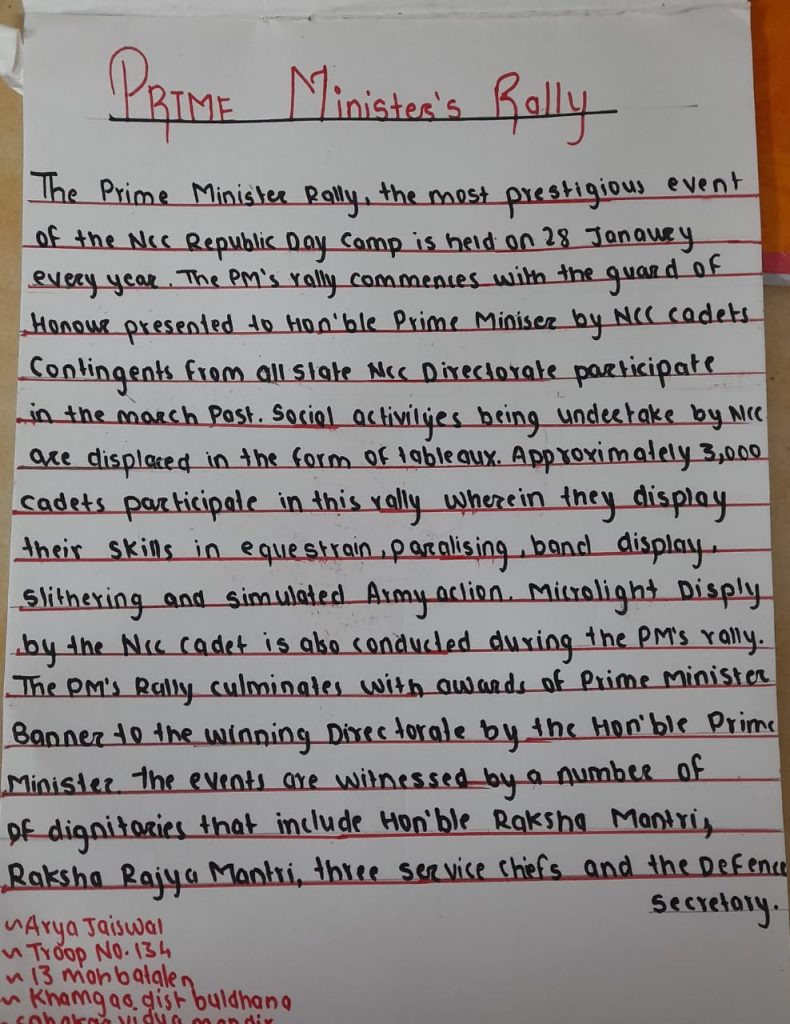 PRIME Minister's Rally
The Prime Minister Rally, the most prestigious event
of the NCC Republic Day Camp is held on 28 Janauey
every year. The PM's rally commences with the guard of
Honour presented to Hon'ble Prime Miniser by NCC cadets
Contingents from all state NCC Directorate participate
in the march Past. Social activilyes being undertake by NCC
are displaced in the form of tableaux. Approximately 3,000
cadets participate in this rally wherein they display
their skills in equestrain, paralising, band display,
slithering and simulated Army action. Microlight Disply
by the NCC cadet is also conducted during the PM's rally.
The PM's Rally culminates with awards of Prime Minister
Banner to the winning Directorate by the Hon'ble Prime
Minister. The events are witnessed by a number of
of dignitaries that include Hon'ble Raksha Mantri,
Raksha Rajya Mantri, three service chiefs and the Defence
secretary.
~ Arya Jaiswal
~ Troop No. 134
~ 13 mahbatalen
~ Khamgao. dist buldhana
vidya mandir